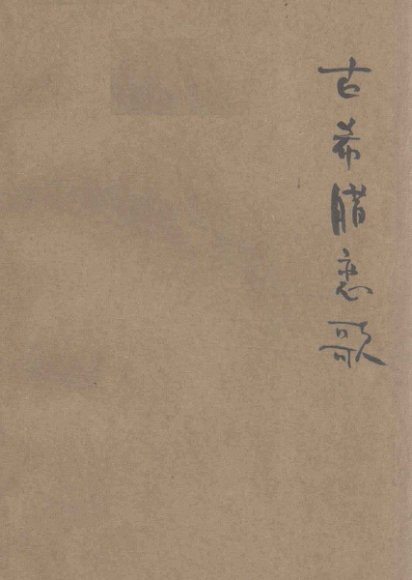 古希腊恋歌